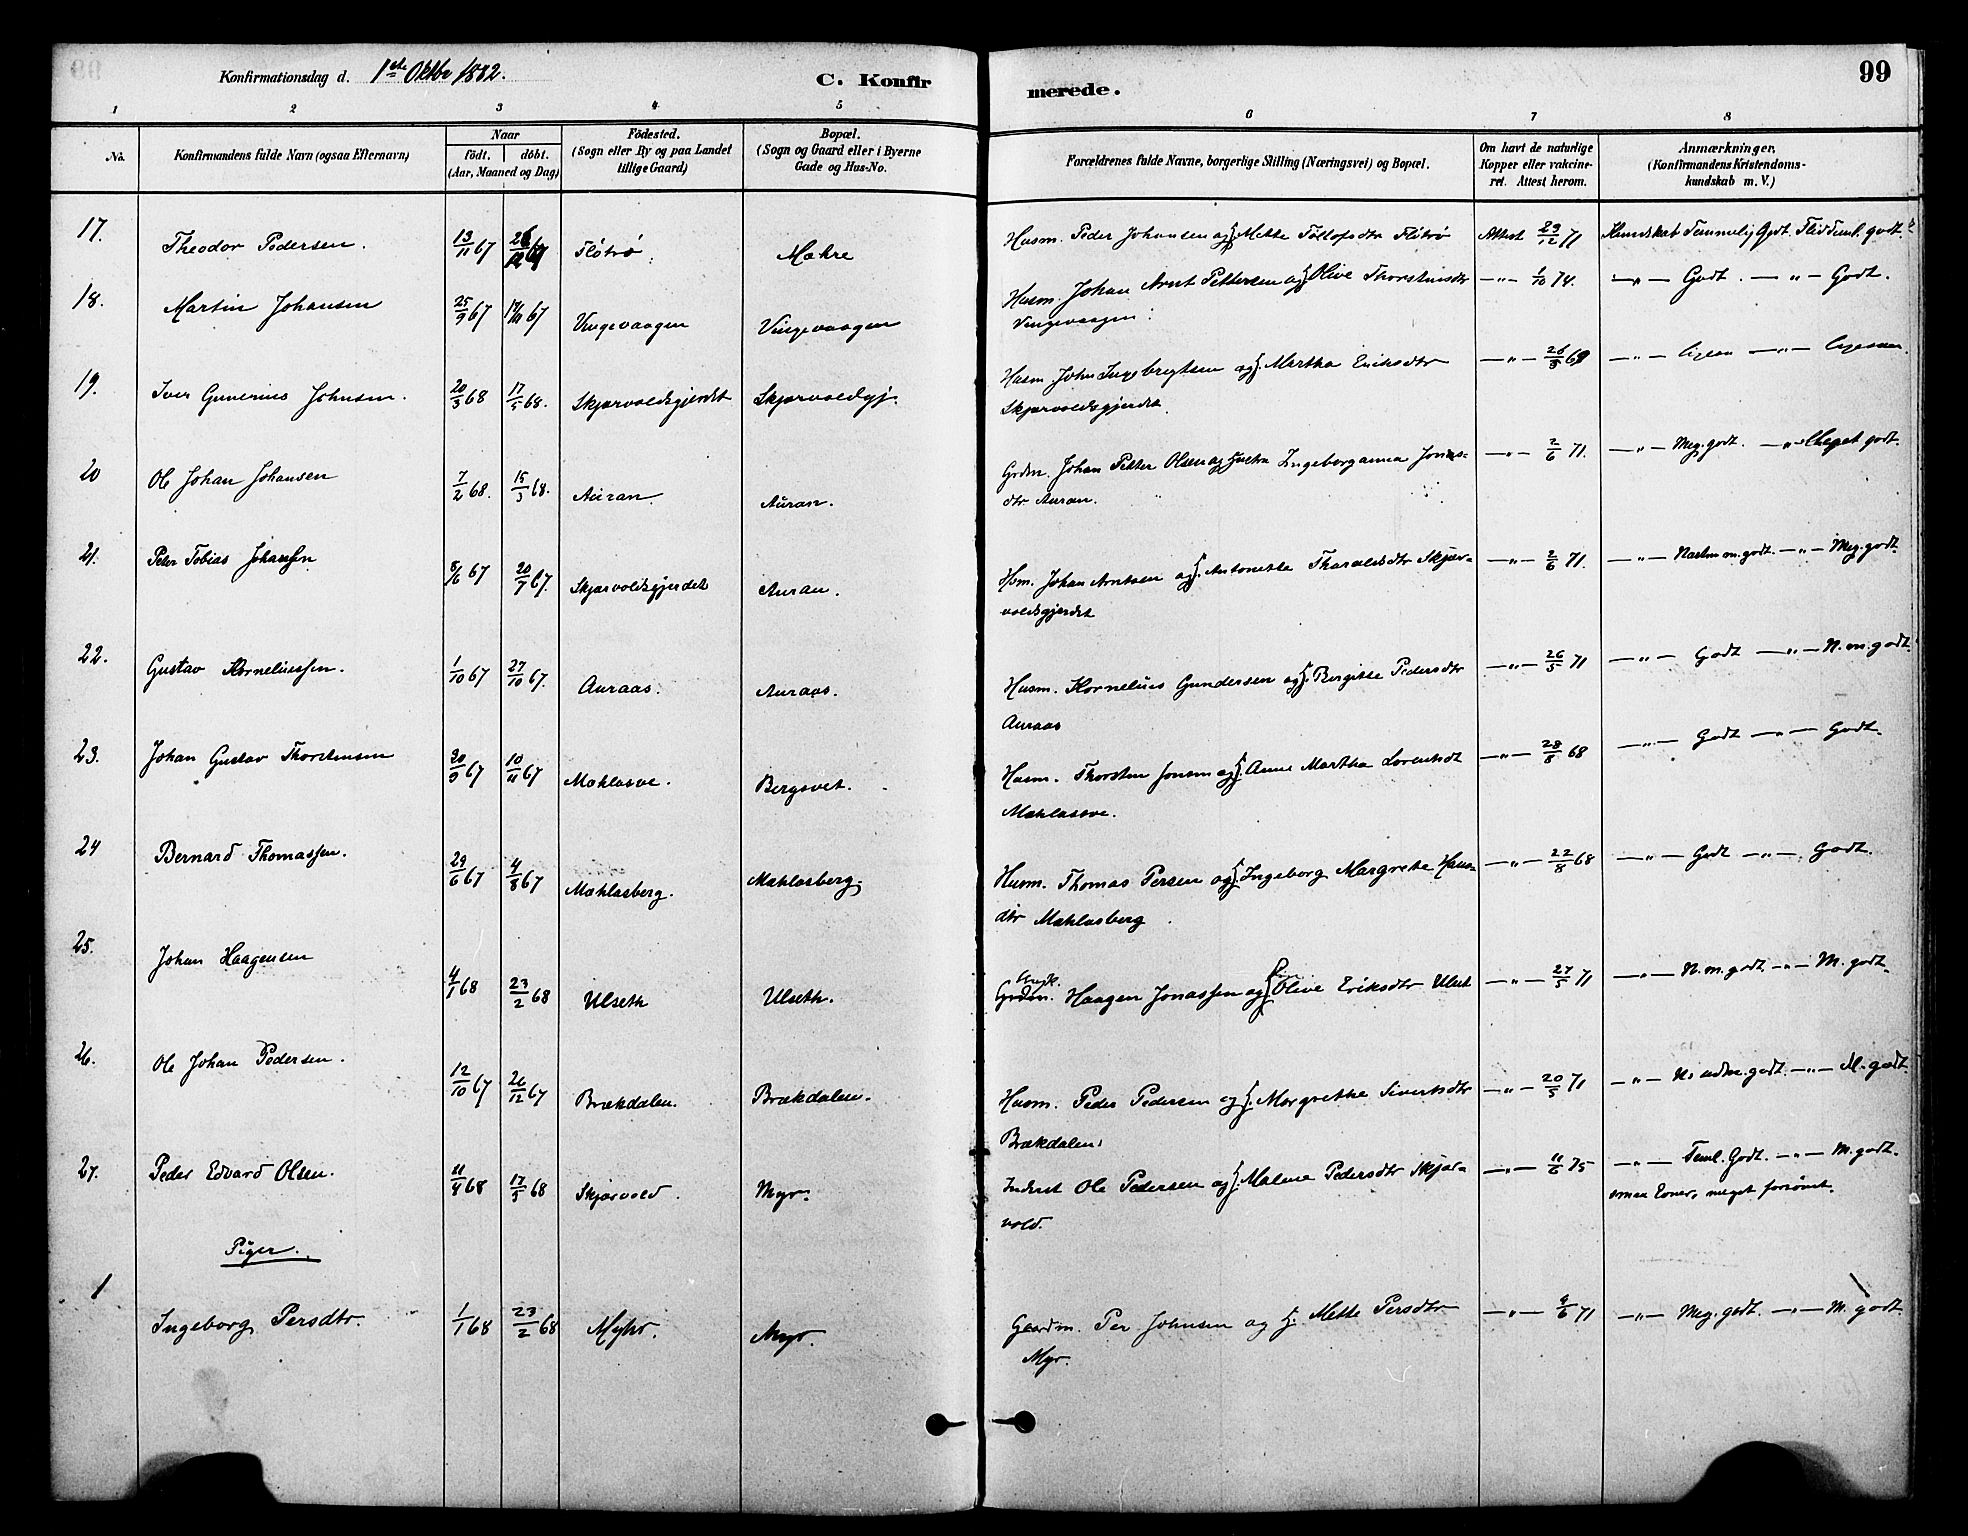 Konfirmationsdag d. 1ste Oktbr 1882.
C. Konfirmerede.
99
1 2 3 4 5 6 7 8
No.
Konfirmandens fulde Navn (ogsaa Efternavn)
Naar
födt. döbt.
(Aar, Maaned og Dag)
Födested.
(Sogn eller By og paa Landet
tillige Gaard)
Bopæl.
(Sogn og Gaard eller i Byerne
Gade og Hus-No.
Forældrenes fulde Navne, borgerlige Stilling (Næringsvei) og Bopæl.
Om havt de naturlige
Kopper eller vakcine-
ret. Attest herom.
Anmærkninger,
(Konfirmandens Kristendoms-
kundskab m. V.)
17. Theodor Pedersen. 13/11 67 Flötrö. Mæhre Husm. Peder Johansen og H. Mette Tollefsdtr Flötrö Attest 29/12 71 Kundskab Temmelig Godt. Flid Teml. godt.
18. Martin Johansen 25/9 67 Vingevaagen Vingevaagen Husm. Johan Arnt Pettersen og H. Olive Thorstensdtr —„— 1/10 74. —„— Godt. —„— Godt.
Vingevaagen.
19. Iver Gunerius Johnsen. 20/3 68 17/5 68. Skjærvoldsgjerdet Skjærvoldsgj. Husm. John Ingebrigtsen og H. Martha Eriksdtr —„— 26/5 69 —„— Ligesaa —„— Ligesaa.
Skjærvoldsgjerdet.
20 Ole Johan Johansen 7/2 68. 15/3 68. Auran. Auran. Grdm. Johan Petter Olsen og Hustru Ingeborganna Jonas- —„— 2/6 71. —„— Meg. godt. —„— Meget godt.
dtr Auran.
21. Peter Tobias Johansen 8/6 67 20/7 67. Skjærvoldsgjerdet Auran. Hsm. Johan Arntsen og H. Antonette Tharaldsdtr Skjær- —„— 2/6 71. —„— Næsten m. godt. —„— Meg. godt.
voldsgjerdet
22. Gustav Korneliussen. 1/10 67 27/10 67. Auraas. Auraas. Husm. Kornelius Gundersen og H. Birgitte Pedersdtr —„— 26/5 71 —„— Godt —„— N. m. godt.
Auraas
23. Johan Gustav Thorstensen 20/9 67 10/11 67 Mæhlasve. Bergsvet. Husm. Thorsten Jonsen og H. Anne Martha Lorentsdt —„— 28/8 68 —„— Godt —„— Godt.
Mæhlasve.
24 Bernard Thomassen. 29/6 67 4/8 67 Mæhlasberg. Mæhlasberg. Husm. Thomas Persen og H. Ingeborg Margrethe Hans- —„— 22/8 68 —„— Godt —„— Godt.
dtr Mæhlasberg
25. Johan Haagensen 4/1 68 23/2 68 Ulseth Ulseth. Grdm. Haagen Jonassen og H. Olive Eriksdtr Ulset —„— 27/5 71 —„— N. m. godt. —„— M. godt.
26. Ole Johan Pedersen. 12/10 67 26/12 67 Brækdalen. Brækdalen. Husm. Peder Pedersen og H. Margrethe Sivertsdtr —„— 20/5 71 —„— godt. —„— M. godt.
Brækdalen.
27. Peder Edvard Olsen. 11/4 68 17/5 68 Skjærvold. Myr. Inderst Ole Pedersen og H. Malene Pedersdtr Skjær- —„— 11/6 75 —„— Teml. Godt. —„— M. godt.
vold. smaa Evner, meget forsömt.
Piger.
1 Ingeborg Persdtr. 1/1 68 23/2 68 Myhr. Myr. Gaardm. Per Johnsen og H. Mette Persdtr —„— 9/6 71 —„— Meg. godt. —„— M. godt
Myr.